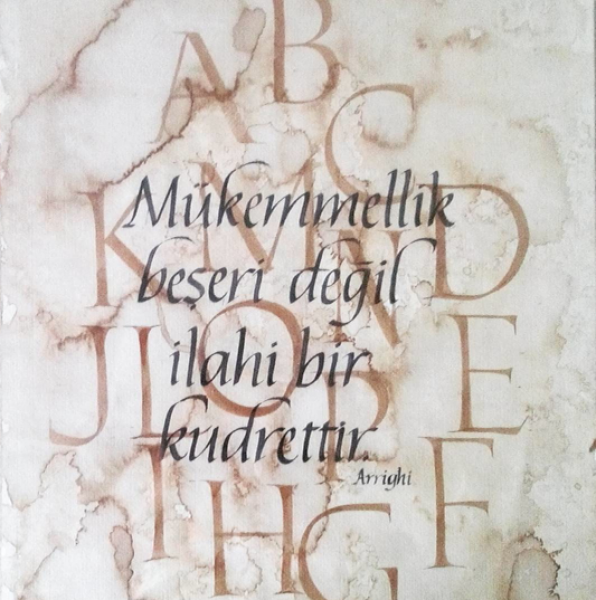 A B C
Mükemmellik
beşeri değil
ilahi bir
kudrettir.
Arrighi
K M N D
J L O P E
I H G F